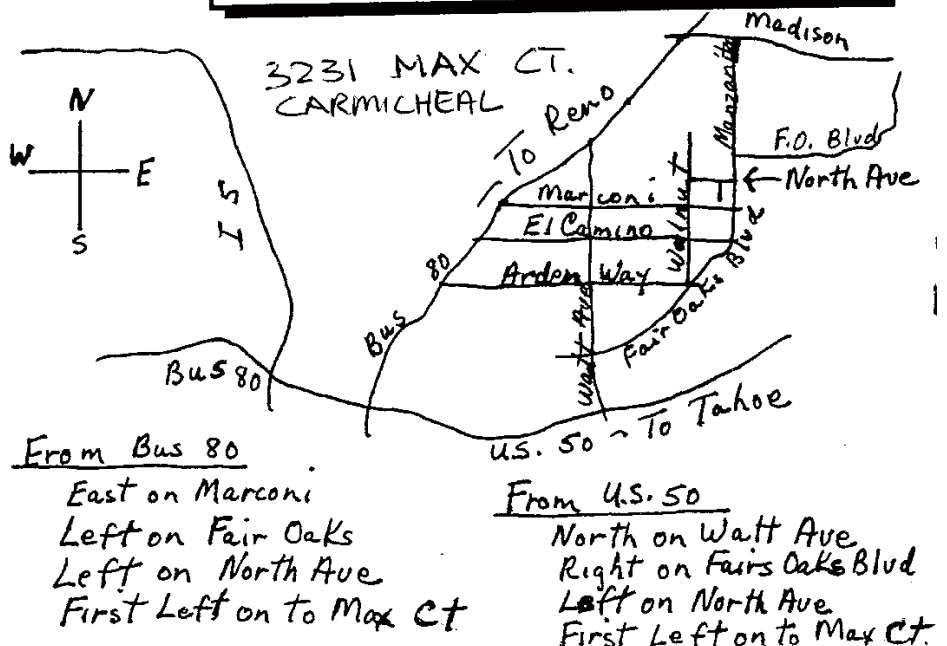 Madison
3231 MAX CT.
CARMICHEAL
N
W
E
S
I 5
To Reno
Manzanita
F.O. Blvd
North Ave
Marconi
Walnut
El Camino
Arden Way
80
Bus
Watt Ave
Fair Oaks Blvd
Bus 80
U.S. 50 - To Tahoe
From Bus 80
East on Marconi
Left on Fair Oaks
Left on North Ave
First Left on to Max Ct
From U.S. 50
North on Watt Ave
Right on Fairs Oaks Blvd
Left on North Ave
First Left on to Max Ct.